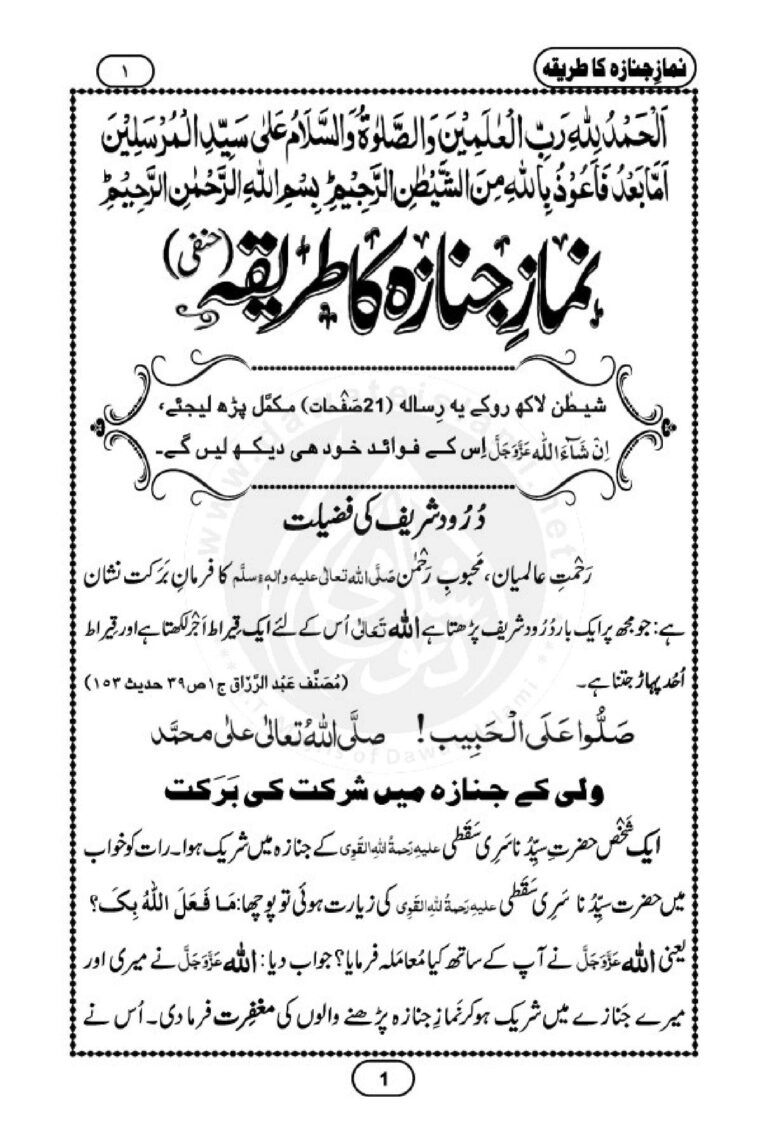 نمازِ جنازہ کا طریقہ
۱
اَلْحَمْدُ لِلّٰہِ رَبِّ الْعٰلَمِیْنَ وَالصَّلٰوۃُ وَالسَّلَامُ عَلٰی سَیِّدِ الْمُرْسَلِیْنَ
اَمَّا بَعْدُ فَاَعُوْذُ بِاللّٰہِ مِنَ الشَّیْطٰنِ الرَّجِیْمِؕ بِسْمِ اللّٰہِ الرَّحْمٰنِ الرَّحِیْمِؕ
نمازِ جنازہ کا طریقہ (حنفی)
شیطٰن لاکھ روکے یہ رِسالہ (21صَفْحات) مکمَّل پڑھ لیجئے،
اِنْ شَآءَ اللّٰہ عَزَّوَجَلَّ اِس کے فوائد خود ھی دیکھ لیں گے۔
دُرُود شریف کی فضیلت
رَحْمتِ عالمیان، مَحبوبِ رَحْمٰن صَلَّی اللہ تعالٰی علیہ والہٖ وسلَّم کا فرمانِ بَرَکت نشان
ہے: جو مجھ پر ایک بار دُرُود شریف پڑھتا ہے اللہ تَعَالٰی اُس کے لئے ایک قِیراط اَجْر لکھتا ہے اور قِیراط
اُحُد پہاڑ جتنا ہے۔ (مُصَنَّف عَبْد الرَّزّاق ج۱ ص۳۹ حدیث ۱۵۳)
صَلُّوا عَلَی الْحَبِیب! صلَّی اللہُ تعالٰی علٰی محمَّد
ولی کے جنازہ میں شرکت کی بَرَکت
ایک شَخْص حضرتِ سیِّدُنا سَرِی سَقَطی علیہ رَحمۃُ اللہِ القَوِی کے جنازہ میں شریک ہوا۔ رات کو خواب
میں حضرت سیِّدُنا سَرِی سَقَطی علیہ رَحمۃُ اللہِ القَوِی کی زیارت ہوئی تو پوچھا: مَا فَعَلَ اللّٰہُ بِکَ؟
یعنی اللہ عَزَّوَجَلَّ نے آپ کے ساتھ کیا مُعامَلہ فرمایا؟ جواب دیا: اللہ عَزَّوَجَلَّ نے میری اور
میرے جَنازے میں شریک ہو کر نَمازِ جنازہ پڑھنے والوں کی مغفِرت فرما دی۔ اُس نے
1